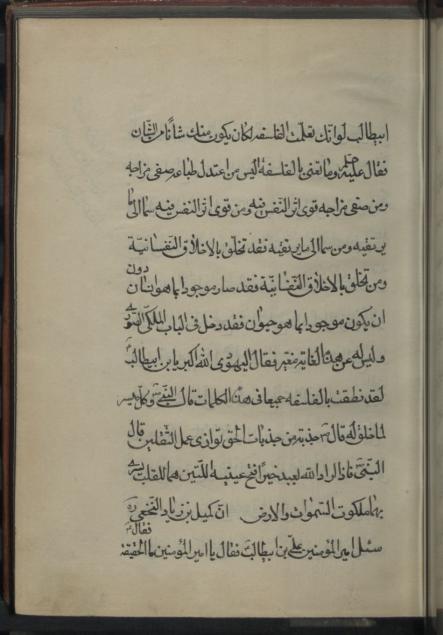 ابیطالب لو انّك تعلمت الفلسفه لکان یکون منك شأنا من الشأن
فقال علیه وما تعنی بالفلسفة الیس من اعتدل طباعه صفی مزاجه
ومن صفی مزاجه قوی اثر النفس فیه ومن قوی اثر النفس فیه سما الی ما
یرتقیه ومن سما الی ما یرتقیه فقد تخلق بالاخلاق النفسانیّة
ومن تخلق بالاخلاق النفسانیّة فقد صار موجودا بما هو انسان دون
ان یکون موجودا بما هو حیوان فقد دخل فی الباب الملکی الصوری
ولیس له عن هذه الغایة مغیر فقال الیهودی الله اکبر یا بن ابیطالب
لقد نطقت بالفلسفه جمیعا فی هذه الکلمات قال النبی وکل میسر
لما خلق له قال جذبة من جذبات الحق توازی عمل الثقلین قال
النبی فاذا اراد الله بعبد خیرا فتح عینیه اللتین هما للقلب لیری
بهما ملکوت السموات والارض انّ کمیل بن زیاد النخعی
سئل امیر المؤمنین علی بن ابیطالب فقال یا امیر المؤمنین ما الحقیقة فقال